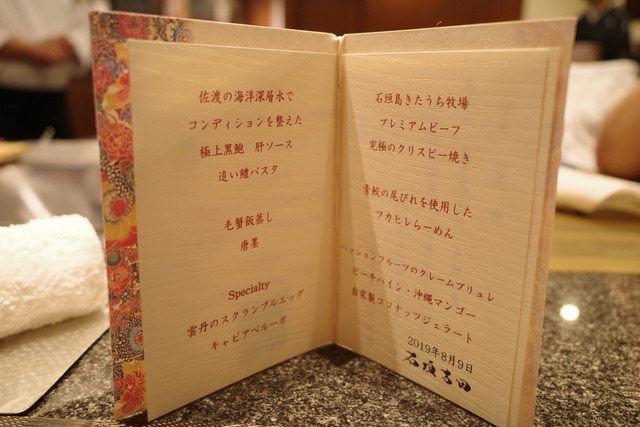 佐渡の海洋深層水で
コンディションを整えた
極上黒鮑 肝ソース
追い鰹パスタ
毛蟹飯蒸し
唐墨
Specialty
雲丹のスクランブルエッグ
キャビアベルーガ
石垣島きたうち牧場
プレミアムビーフ
究極のクリスピー焼き
青鮫の尾びれを使用した
フカヒレらーめん
パッションフルーツのクレームブリュレ
ピーチパイン・沖縄マンゴー
自家製ココナッツジェラート
2019年8月9日
石垣吉田